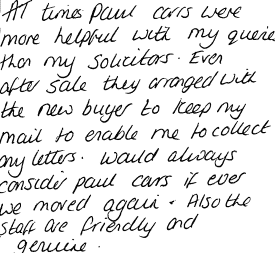 AT times Paul carrs were
more helpful with my querie
than my solicitors. Even
after sale they arranged with
the new buyer to keep my
mail to enable me to collect
my letters. would always
consider paul carrs if ever
we moved again. Also the
staff are friendly and
genuine.